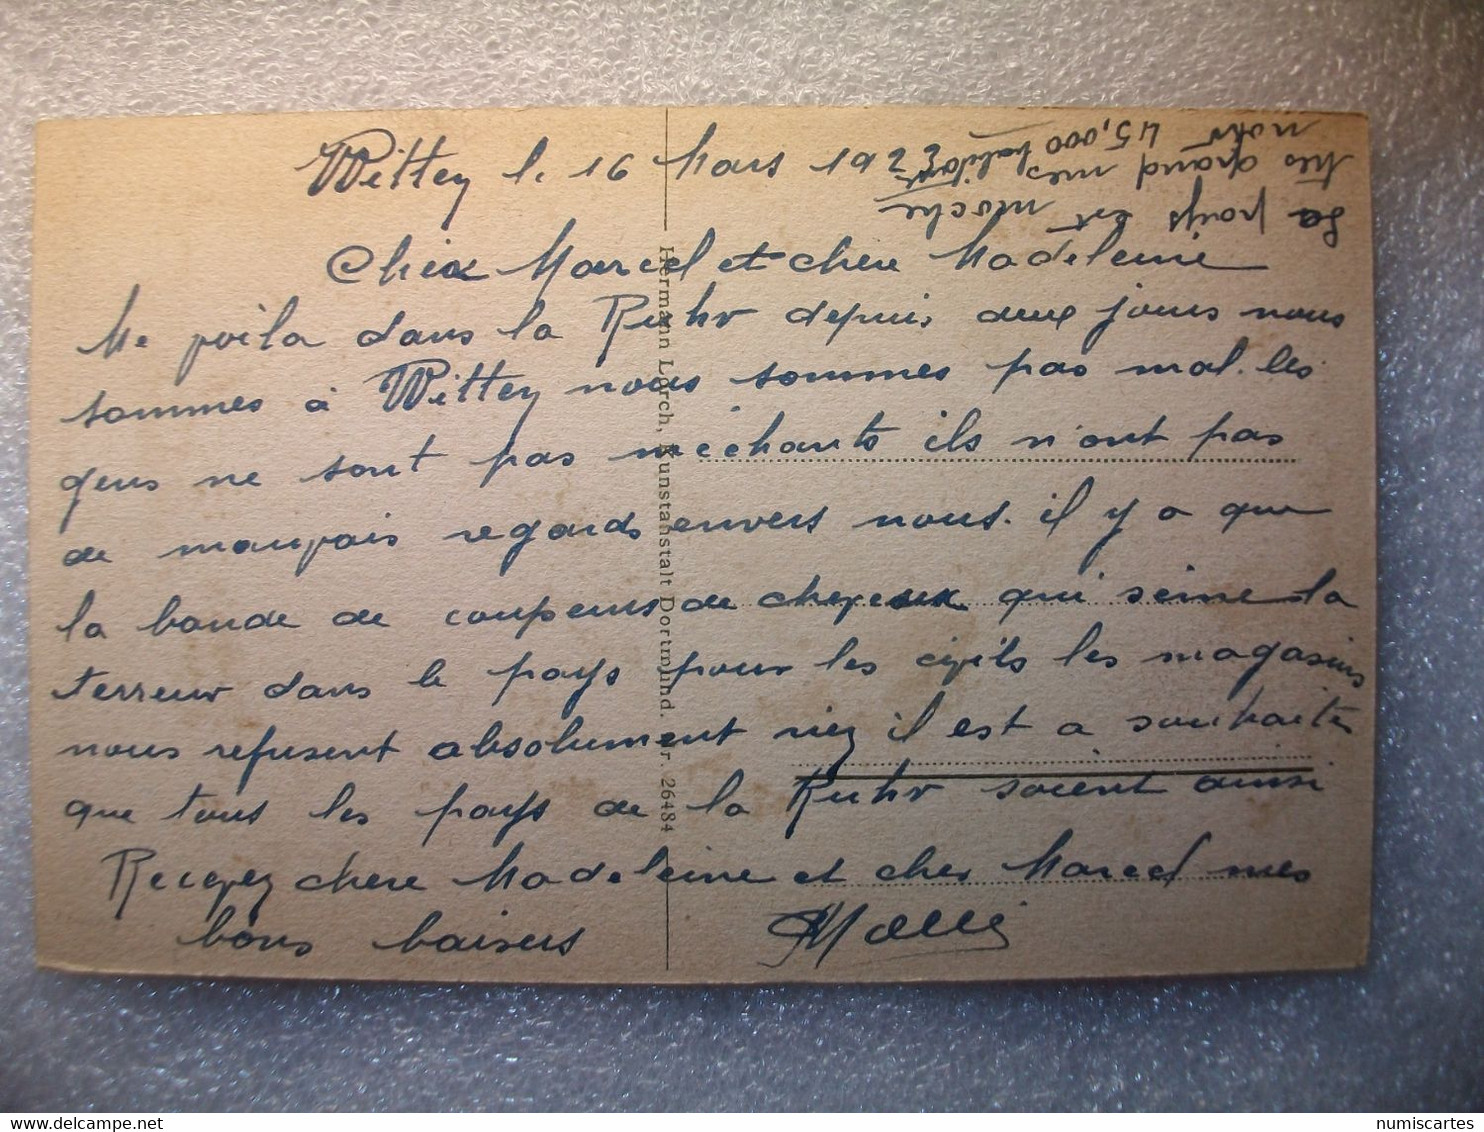 Witten le 16 Mars 1923
Le pays est moche
très grand mes
45,000 habitants
noir
Cher Marcel et chère Madeleine
Me voila dans la Ruhr depuis deux jours nous
sommes à Witten nous sommes pas mal. les
gens ne sont pas méchants ils n'ont pas
de mauvais regards envers nous. il y a que
la bande de coupeurs de cheveux qui sème la
terreur dans le pays pour les civils les magasins
nous refusent absolument rien il est a souhaiter
que tous les pays de la Ruhr soient ainsi
Recevez chère Madeleine et cher Marcel mes
bons baisers
Hermann Lorch, Kunstanstalt Dortmund. Nr. 26484
numiscartes